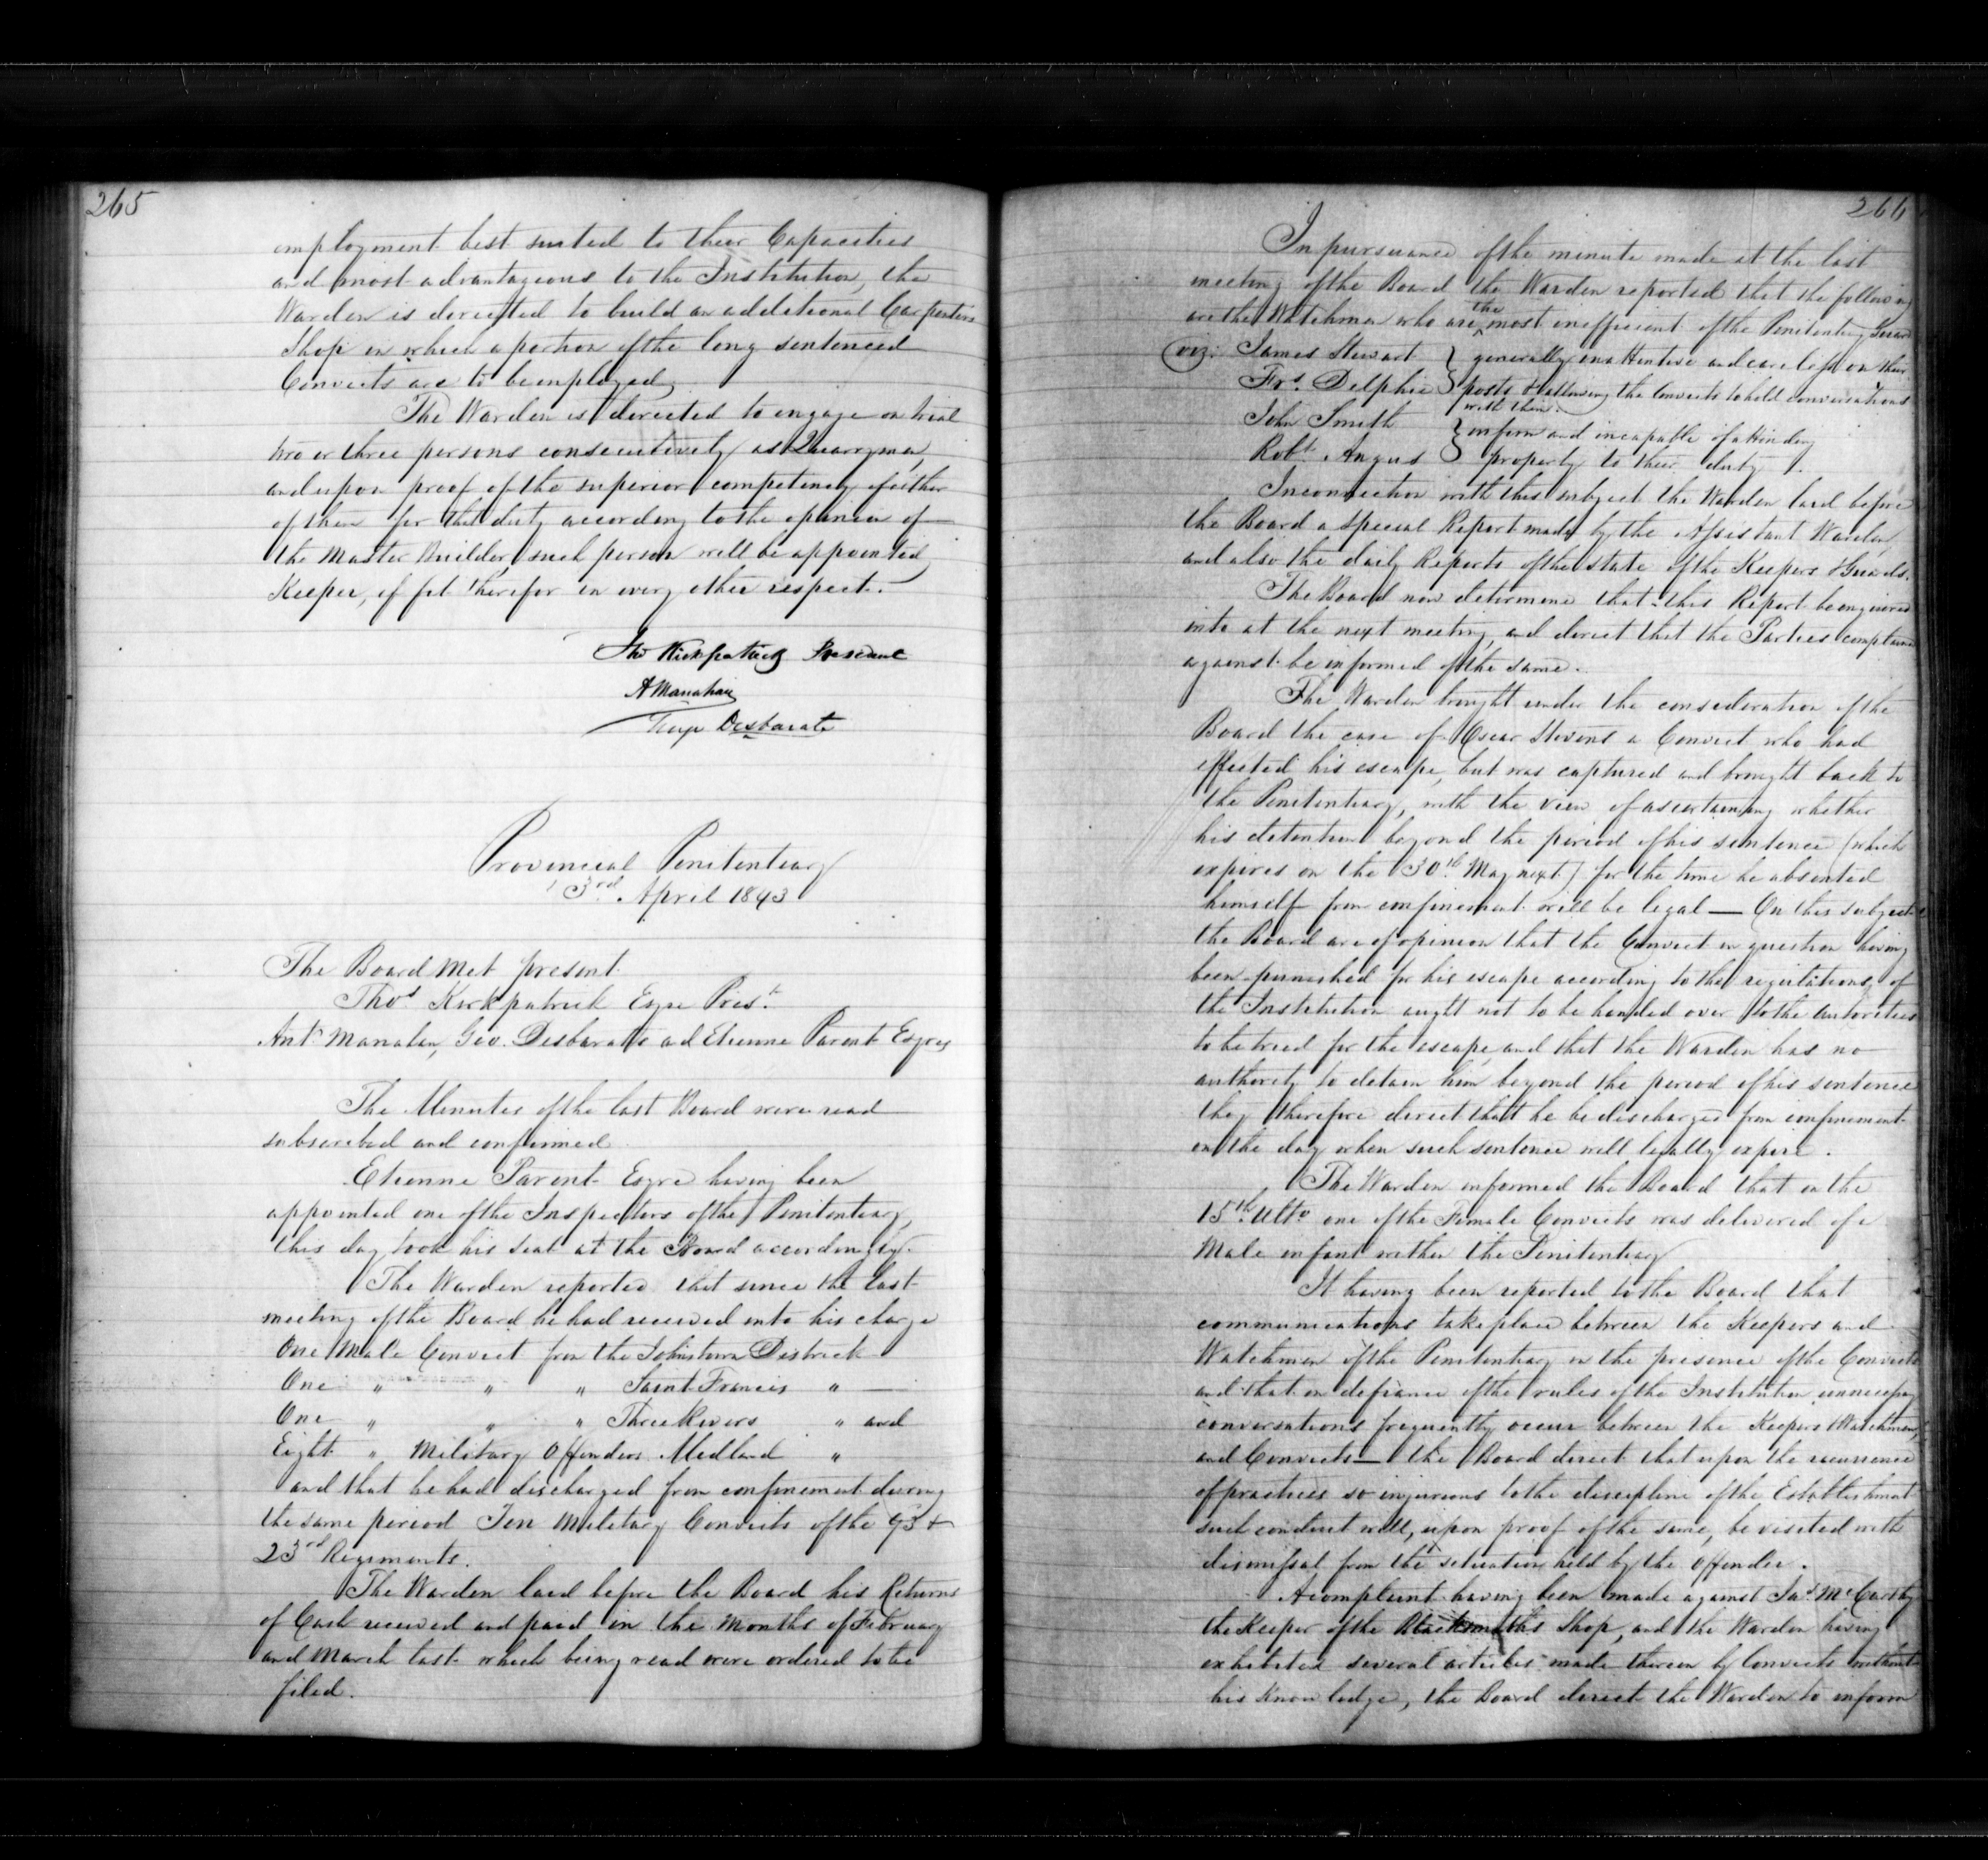 265
employment best suited to their Capacities
and most advantageous to the Institution, the
Warden is directed to build an additional Carpenters
Shop in which a portion of the long sentenced
Convicts are to be employed,
The Warden is directed to engage on trial
two or three persons consecutively as Quarryman,
and upon proof of the superior competency of either
of them for that duty according to the opinion of
the Master Builder, such person will be appointed
Keeper, if fit therefor in every other respect.
Tho Kirkpatrick President
A Manahan
Desbarats
Provincial Penitentiary
3rd April 1843
The Board Met present
Thos Kirkpatrick Esqre Prest
Ant Manahan, Geo. Desbarats and Etienne Parent Esqres
The Minutes of the last Board were read
subscribed and confirmed
Etienne Parent Esqre having been
appointed one of the Inspectors of the Penitentiary,
this day took his seat at the Board accordingly.
The Warden reported that since the last
meeting of the Board he had received into his charge
One Male Convict from the Johnstown District
One " " " Saint Francis "
One " " " Three Rivers " and
Eight " Military Offenders Midland "
and that he had discharged from confinement during
the same period Ten Military Convicts of the 43 &
23rd Regiments.
The Warden laid before the Board his Returns
of Cash received and paid in the Months of February
and March last which being read were ordered to be
filed.
266
In pursuance of the minute made at the last
meeting of the Board the Warden reported that the following
are the Watchmen who are the most inefficient of the Penitentiary Guard
viz: James Stewart } generally inattentive and careless on their
Frs. Delphie } posts & allowing the Convicts to hold conversations
with them.
John Smith } infirm and incapable of attending
Robt. Angus } properly to their duty.
In connection with this subject the Warden laid before
the Board a Special Report made by the Assistant Warden,
and also the daily Reports of the state of the Keepers & Guards.
The Board now determine that this Report be enquired
into at the next meeting, and direct that the Parties complained
against be informed of the same.
The Warden brought under the consideration of the
Board the case of Oscar Stevens a Convict who had
effected his escape, but was captured and brought back to
the Penitentiary, with the view of ascertaining whether
his detention beyond the period of his sentence (which
expires on the 30th May next) for the time he absented
himself from confinement will be legal — On this subject
the Board are of opinion that the Convict in question having
been punished for his escape according to the regulations of
the Institution ought not to be handed over to the autorities
to be tried for the escape, and that the Warden has no
authority to detain him beyond the period of his sentence
they therefore direct that he be discharged from confinement
on the day when such sentence will legally expire.
The Warden informed the Board that on the
15th Ulto one of the Female Convicts was delivered of a
Male infant within the Penitentiary
It having been reported to the Board that
communications take place between the Keepers and
Watchmen of the Penitentiary in the presence of the Convicts
and that in defiance of the rules of the Institution unnecessary
conversations frequently occur between the Keepers & Watchmen,
and Convicts — the Board direct that upon the recurrence
of practices so injurious to the discipline of the Establishment
such conduct will, upon proof of the same, be visited with
dismissal from the situation held by the Offender.
A complaint having been made against Jas. McCarthy
the Keeper of the Blacksmiths Shop, and the Warden having
exhibited several articles made therein by Convicts without
his knowledge, the Board direct the Warden to inform